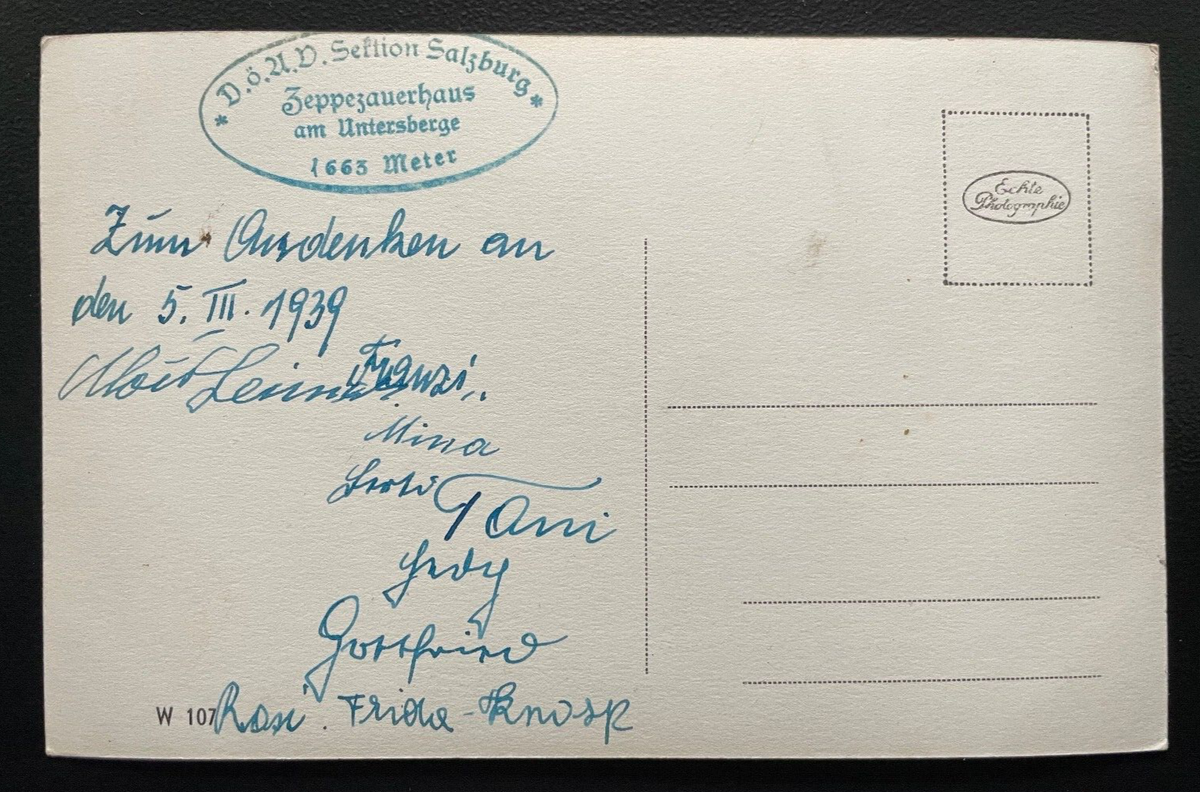 * D.ö.A.V. Sektion Salzburg *
Zeppezauerhaus
am Untersberge
1663 Meter
Echte
Photographie
Zum Andenken an
den 5. III. 1939
Alois Franzi
Mina
Berti
Tani
Hedy
Gottfried
W 107 Rosi. Frida - Knosp